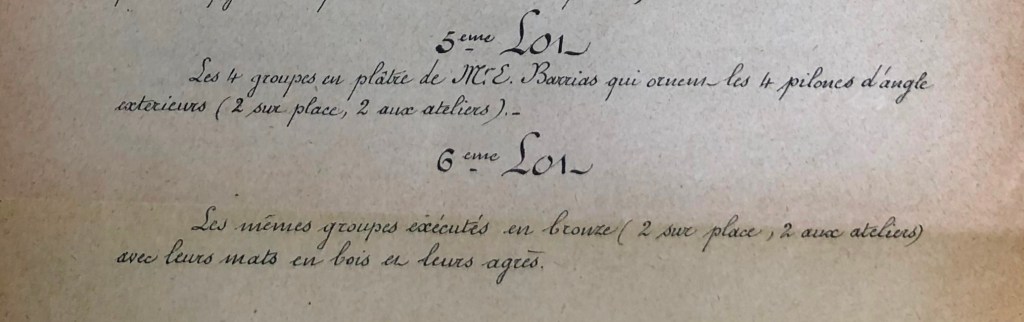 5eme Lot
Les 4 groupes en plâtre de Mr E. Barrias qui ornent les 4 pilones d'angle
exterieurs (2 sur place, 2 aux ateliers).-
6eme Lot
Les mêmes groupes éxécutés en bronze (2 sur place, 2 aux ateliers)
avec leurs mats en bois et leurs agrès.